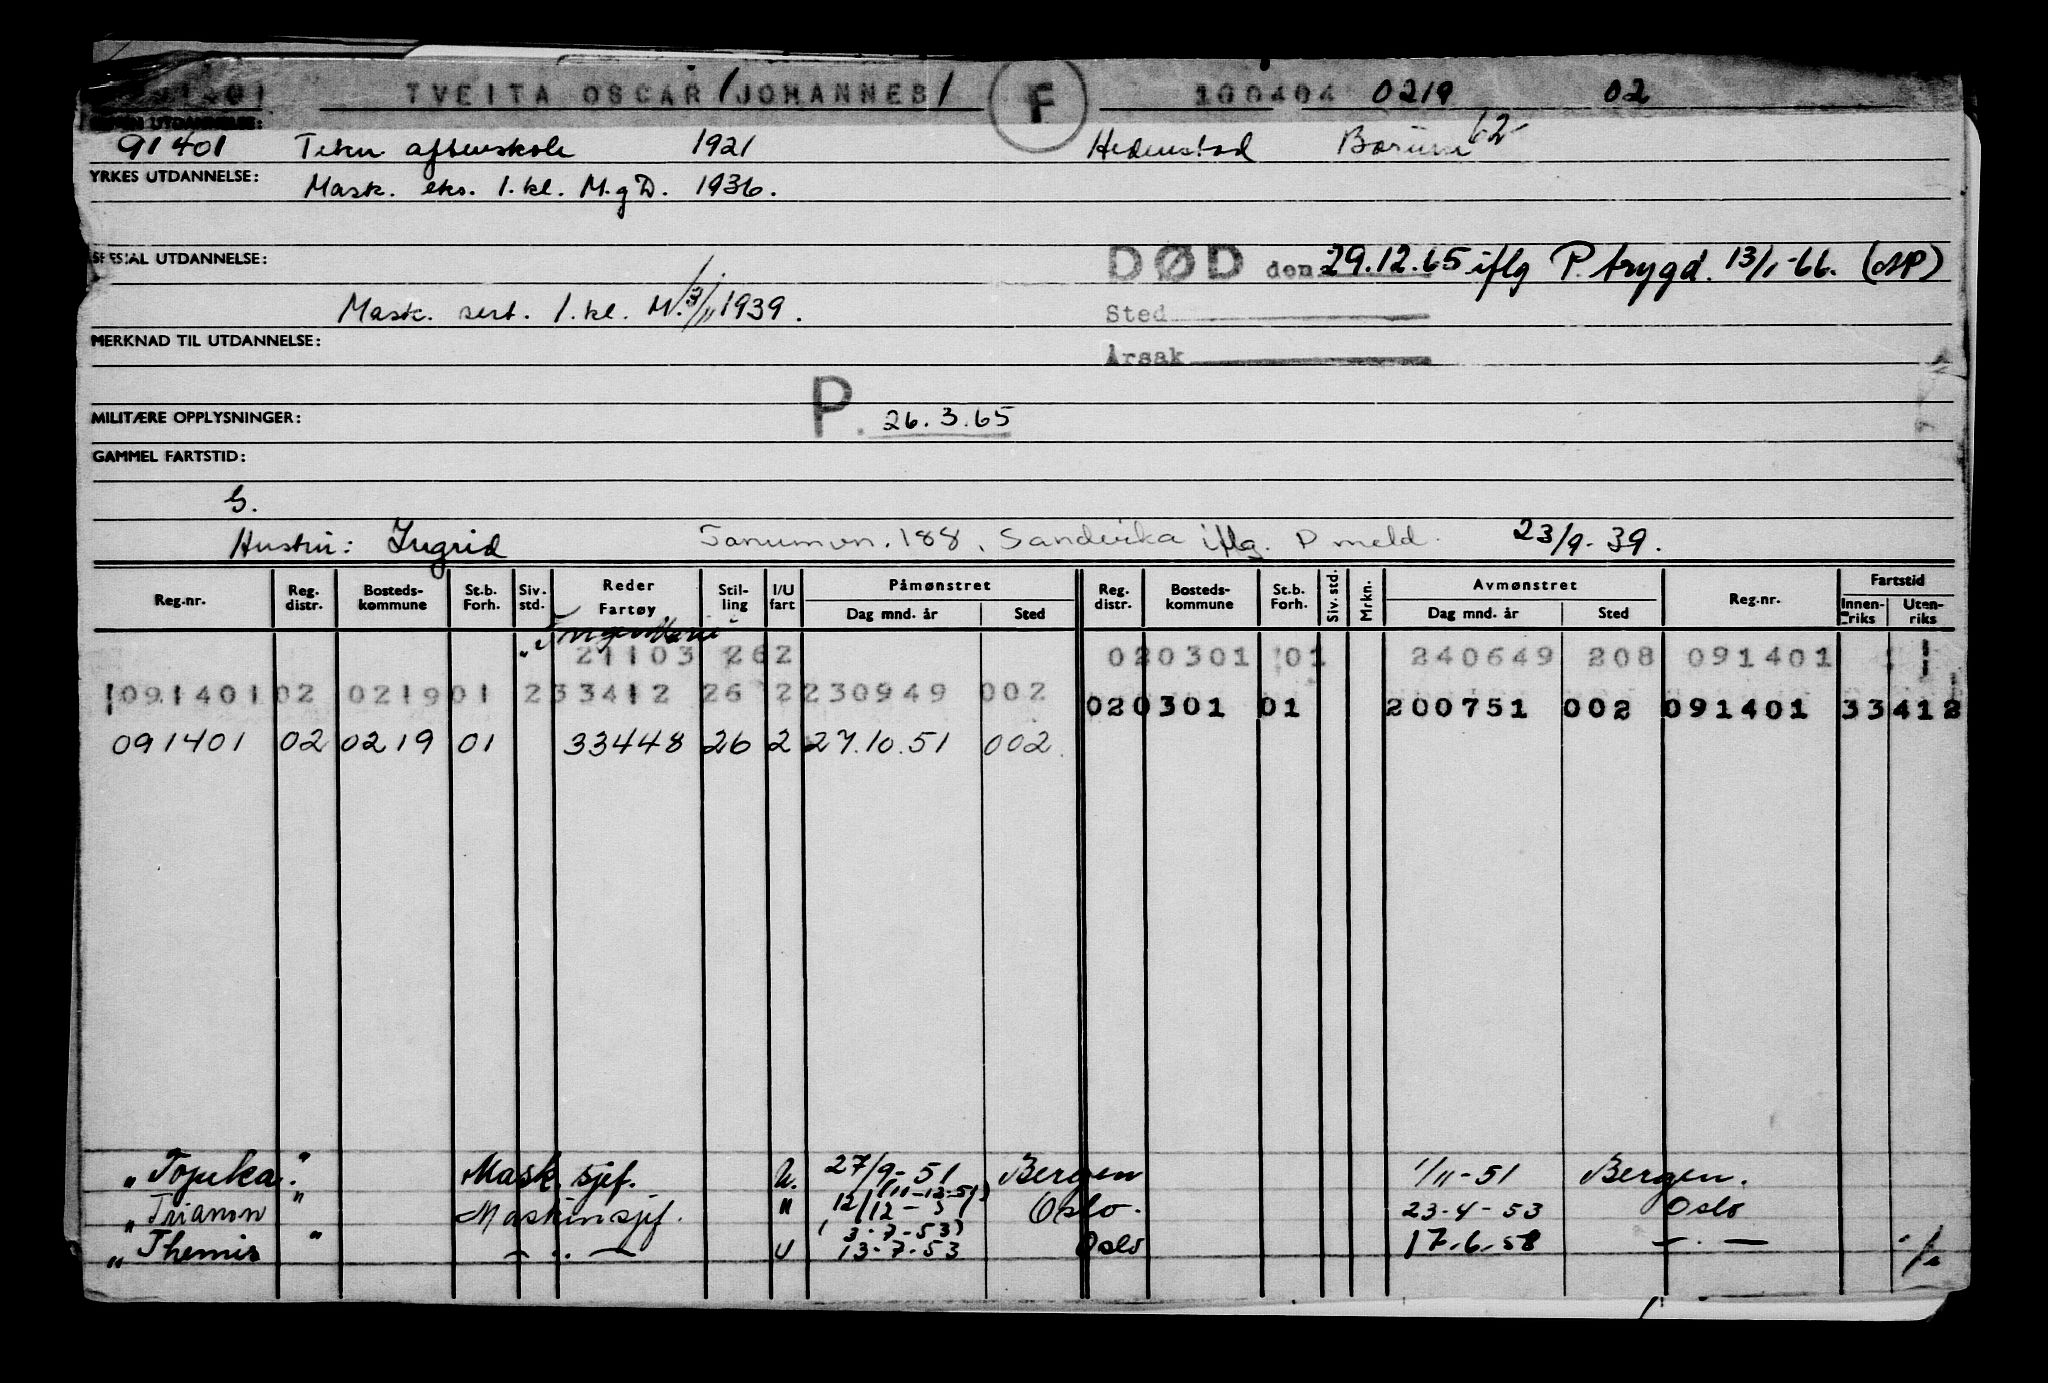 TVEITA OSCAR/JOHANNES/ F 100404 0219 02
UTDANNELSE:
91401 Tekn aftenskole 1921 Hedenstad Bærum 62
YRKES UTDANNELSE: Mask. eks. 1.kl. M.g D. 1936.
SPESIAL UTDANNELSE: DØD den 29.12.65 iflg P. trygd. 13/1-66. (AP)
Mask. sert. 1.kl. M. 3/11 1939. Sted
MERKNAD TIL UTDANNELSE: Årsak
P. 26.3.65
MILITÆRE OPPLYSNINGER:
GAMMEL FARTSTID:
G.
Hustru: Ingrid Tanumvn. 188, Sandvika iflg. P meld. 23/9-39.
Reg.nr. Reg. distr. Bosteds-kommune St.b. Forh. Siv. std. Reder Fartøy Stil-ling I/U fart Påmønstret Dag mnd. år Sted Reg. distr. Bosteds-kommune St.b. Forh. Siv. std. Mrkn. Avmønstret Dag mnd. år Sted Reg.nr. Fartstid Innen-riks Uten-riks
21103 26 2 02 0301 01 240649 208 091401
091401 02 0219 01 2 33412 26 2 230949 002 02 0301 01 200751 002 091401 33412
091401 02 0219 01 33448 26 2 27.10.51 002
"Topeka" Mask.sjef. U. 27/9-51 Bergen 1/11-51 Bergen.
(11-12-51)
"Trianon" Maskinsjef. " 12/12-51 Oslo. 23-4-53 Oslo
(3-7-53)
"Themis" -"- U 13-7-53 Oslo 17-6-58 -"-